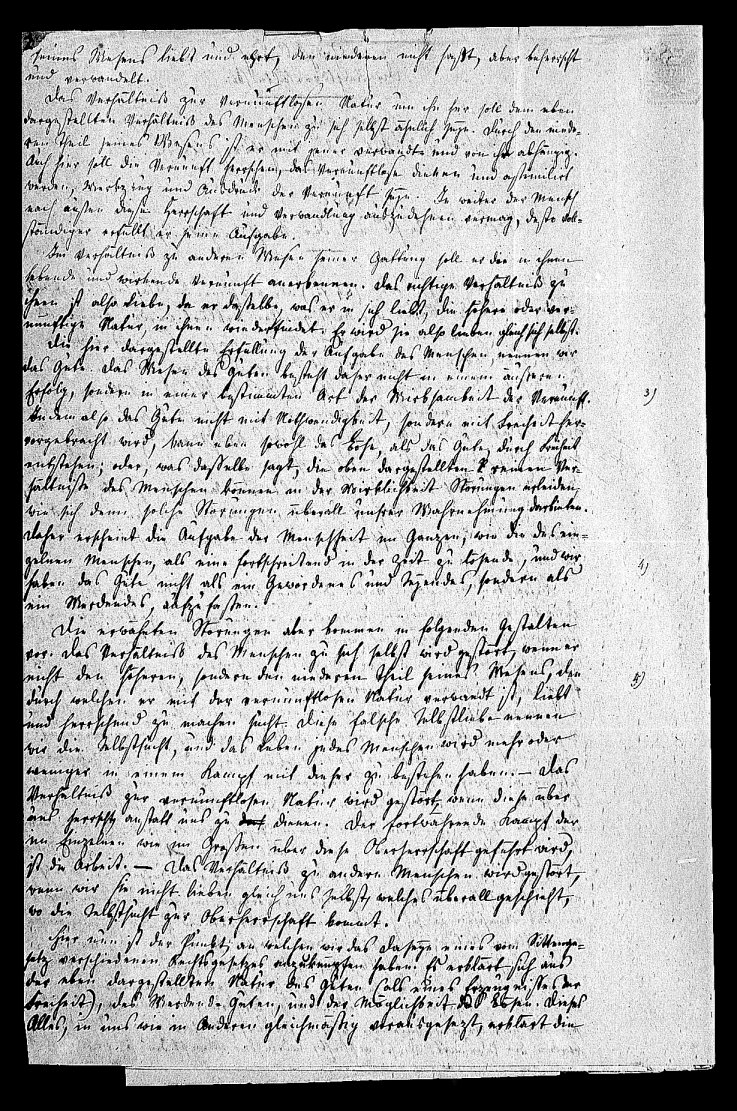 seines Wesens liebt und ehrt, den niederen nicht haßt, aber beherrscht
und verwandelt.
Das Verhältniß zur vernunftlosen Natur um ihn her soll dem eben
dargestellten Verhältniß des Menschen zu sich selbst ähnlich seyn. Durch den niede-
ren Theil seines Wesens ist er mit jener verwandt und von ihr abhängig.
Auch hier soll die Vernunft herrschen, das Vernunftlose dienen und assimilirt
werden, Werkzeug und Ausdruck der Vernunft seyn. Je weiter der Mensch
nach außen diese Herrschaft und Verwandlung auszudehnen vermag, desto voll-
ständiger erfüllt er seine Aufgabe.
Im Verhältniß zu anderen Wesen seiner Gattung soll er die in ihnen
lebende und wirkende Vernunft anerkennen. Das richtige Verhältniß zu
ihnen ist also Liebe, da er dasselbe, was er in sich liebt, die höhere oder ver-
nünftige Natur, in ihnen wiederfindet. Er wird sie also lieben gleich sich selbst.
Die hier dargestellte Erfüllung der Aufgabe des Menschen nennen wir
das Gute. Das Wesen des Guten besteht daher nicht in einem äußeren
Erfolg, sondern in einer bestimmten Art der Wirksamkeit der Vernunft.
3)
Indem also das Gute nicht mit Nothwendigkeit, sondern mit Freiheit her-
vorgebracht wird, kann eben sowohl das Böse, als das Gute, durch Freiheit
entstehen; oder, was dasselbe sagt, die oben dargestellten reinen Ver-
hältnisse des Menschen können in der Wirklichkeit Störungen erleiden,
wie sich denn solche Störungen überall unsrer Wahrnehmung darbieten.
Daher erscheint die Aufgabe der Menschheit im Ganzen, wie die des ein-
zelnen Menschen, als eine fortschreitend in der Zeit zu lösende, und wir
4)
haben das Gute nicht als ein Gewordenes und Seyendes, sondern als
ein Werdendes, aufzufassen.
Die erwähnten Störungen aber kommen in folgenden Gestalten
vor. Das Verhältniß des Menschen zu sich selbst wird gestört, wenn er
nicht den höheren, sondern den niederen Theil seines Wesens, den
durch welchen er mit der vernunftlosen Natur verwandt ist, liebt
und herrschend zu machen sucht. Diese falsche Selbstliebe nennen
wir die Selbstsucht, und das Leben jedes Menschen wird mehr oder
weniger in einem Kampf mit dieser zu bestehen haben. — Das
Verhältniß zur vernunftlosen Natur wird gestört, wenn diese über
uns herrscht, anstatt uns zu dienen. Der fortwährende Kampf der
im Einzelnen wie im Großen über diese Oberherrschaft geführt wird,
ist die Arbeit. — Das Verhältniß zu andern Menschen wird gestört,
wenn wir sie nicht lieben gleich uns selbst, welches überall geschieht,
wo die Selbstsucht zur Oberherrschaft kommt.
Hier nun ist der Punkt, an welchen wir das Daseyn eines vom Sittenge-
setz verschiedenen Rechtsgesetzes anzuknüpfen haben. Es erklärt sich aus
der eben dargestellten Natur des Guten (als eines Erzeugnisses der
Freiheit), des Werdens des Guten, und der Möglichkeit des Bösen. Dieses
Alles, in uns wie in Anderen gleichmäßig vorausgesetzt, erklärt die